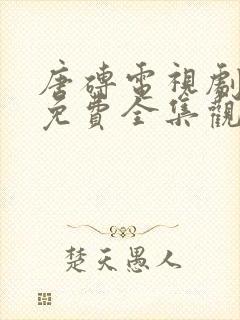 唐磚電視劇
免費全集觀
楚天愚人